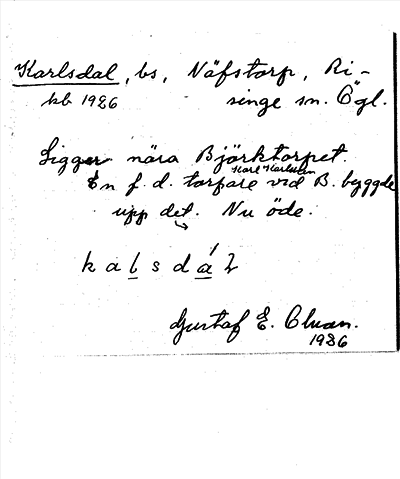 Karlsdal, bs, Näfstorp, Ri-
kb 1926 singe sn. Ögl.
Ligger nära Björktorpet.
Karl Karlsson
En f. d. torpare vid B. byggde
upp det. Nu öde.
k a l s d á l
Gustaf E. Cluan.
1926